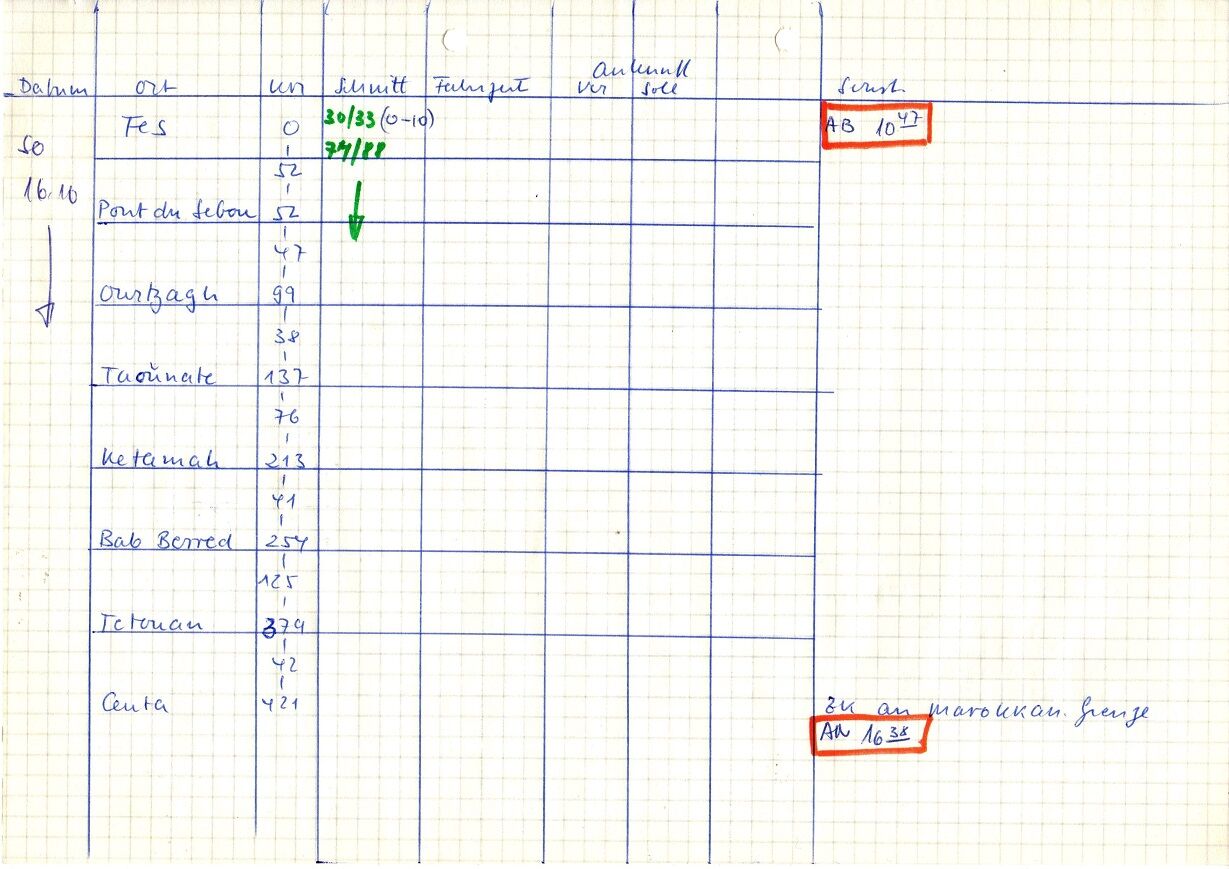 Ankunft
Datum Ort km Schnitt Fahrzeit vor soll Sonst.
Fes 0 30/33 (0-10) AB 10 47
So 74/88
52
16.10
Pont du Sebou 52
47
Ourtzagh 99
38
Taoŭnate 137
76
Ketamah 213
41
Bab Berred 254
125
Tetouan 379
42
Ceuta 421 ZK an marokkan. Grenze
AN 16 38